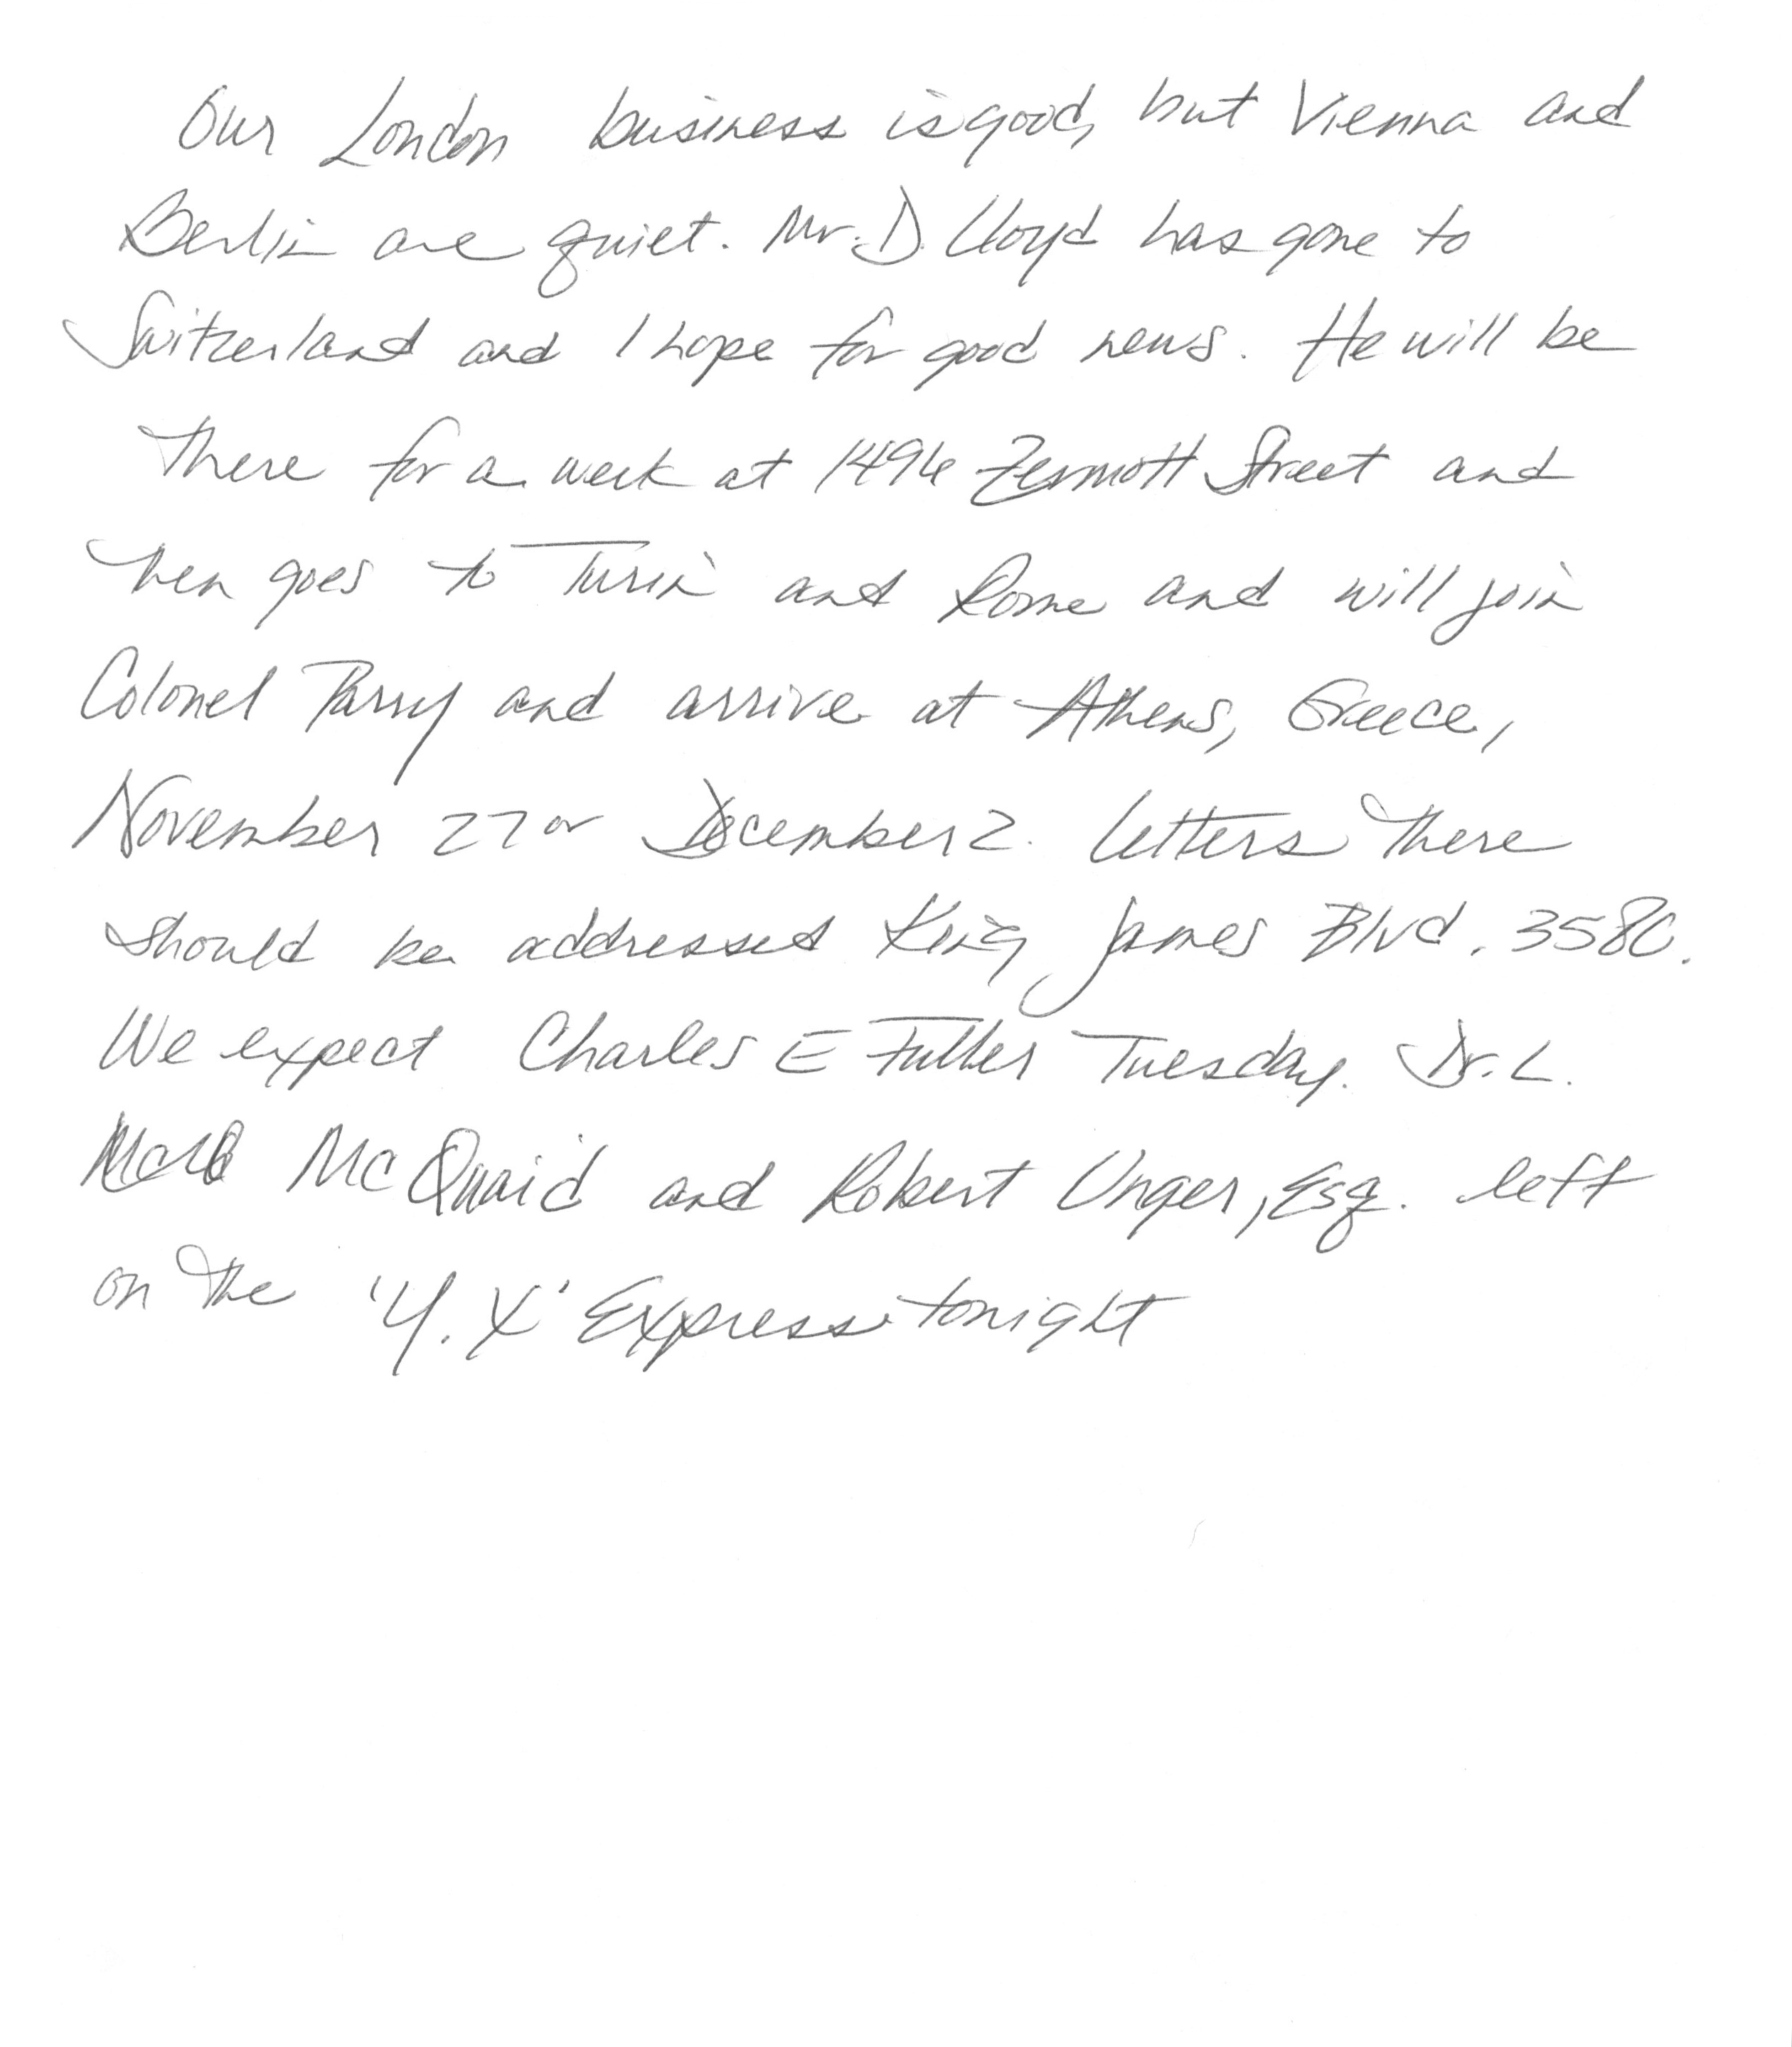 Our London business is good, but Vienna and
Berlin are quiet. Mr. D. Lloyd has gone to
Switzerland and I hope for good news. He will be
there for a week at 1496 Zermott Street and
then goes to Turin and Rome and will join
Colonel Parry and arrive at Athens, Greece,
November 27 or December 2. Letters there
should be addressed King James Blvd. 3580.
We expect Charles E Fuller Tuesday. Dr. L.
McQuaid and Robert Unger, Esq. left
on the 'Y.X' Express tonight